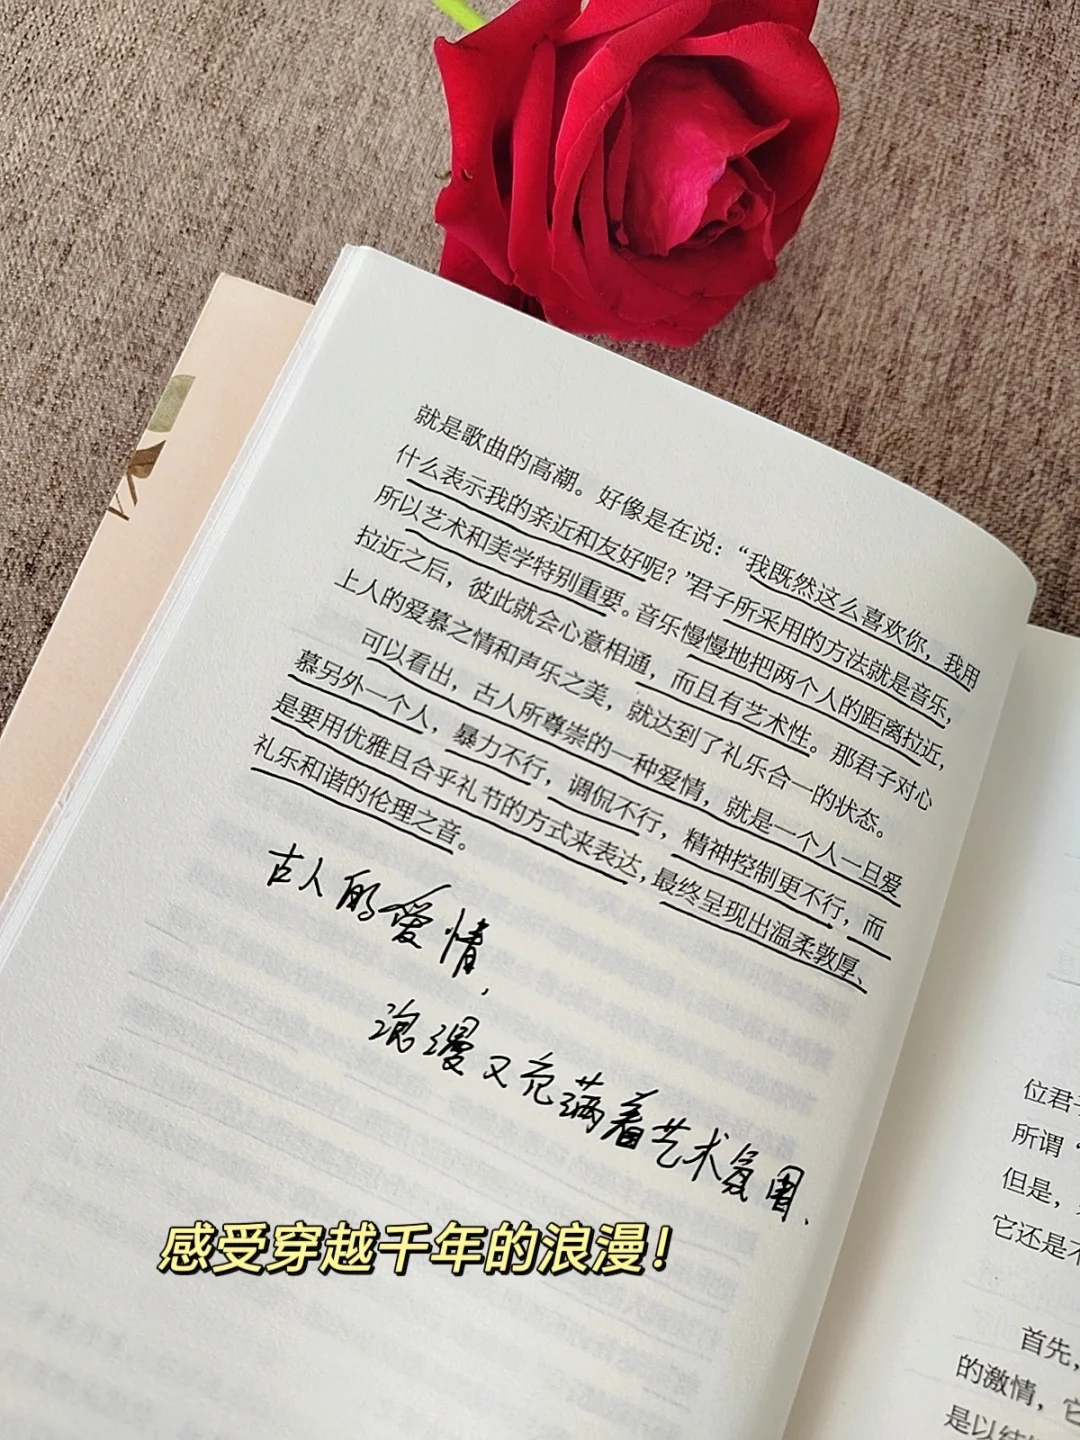 就是歌曲的高潮。好像是在说：“我既然这么喜欢你，我用
什么表示我的亲近和友好呢？”君子所采用的方法就是音乐，
所以艺术和美学特别重要。音乐慢慢地把两个人的距离拉近，
拉近之后，彼此就会心意相通，而且有艺术性。那君子对心
上人的爱慕之情和声乐之美，就达到了礼乐合一的状态。
可以看出，古人所尊崇的一种爱情，就是一个人一旦爱
慕另外一个人，暴力不行，调侃不行，精神控制更不行，而
是要用优雅且合乎礼节的方式来表达，最终呈现出温柔敦厚、
礼乐和谐的伦理之音。
古人的爱情，
浪漫又充满着艺术氛围.
感受穿越千年的浪漫！
位君子
所谓“
但是，
它还是不
首先，
的激情，它
是以结